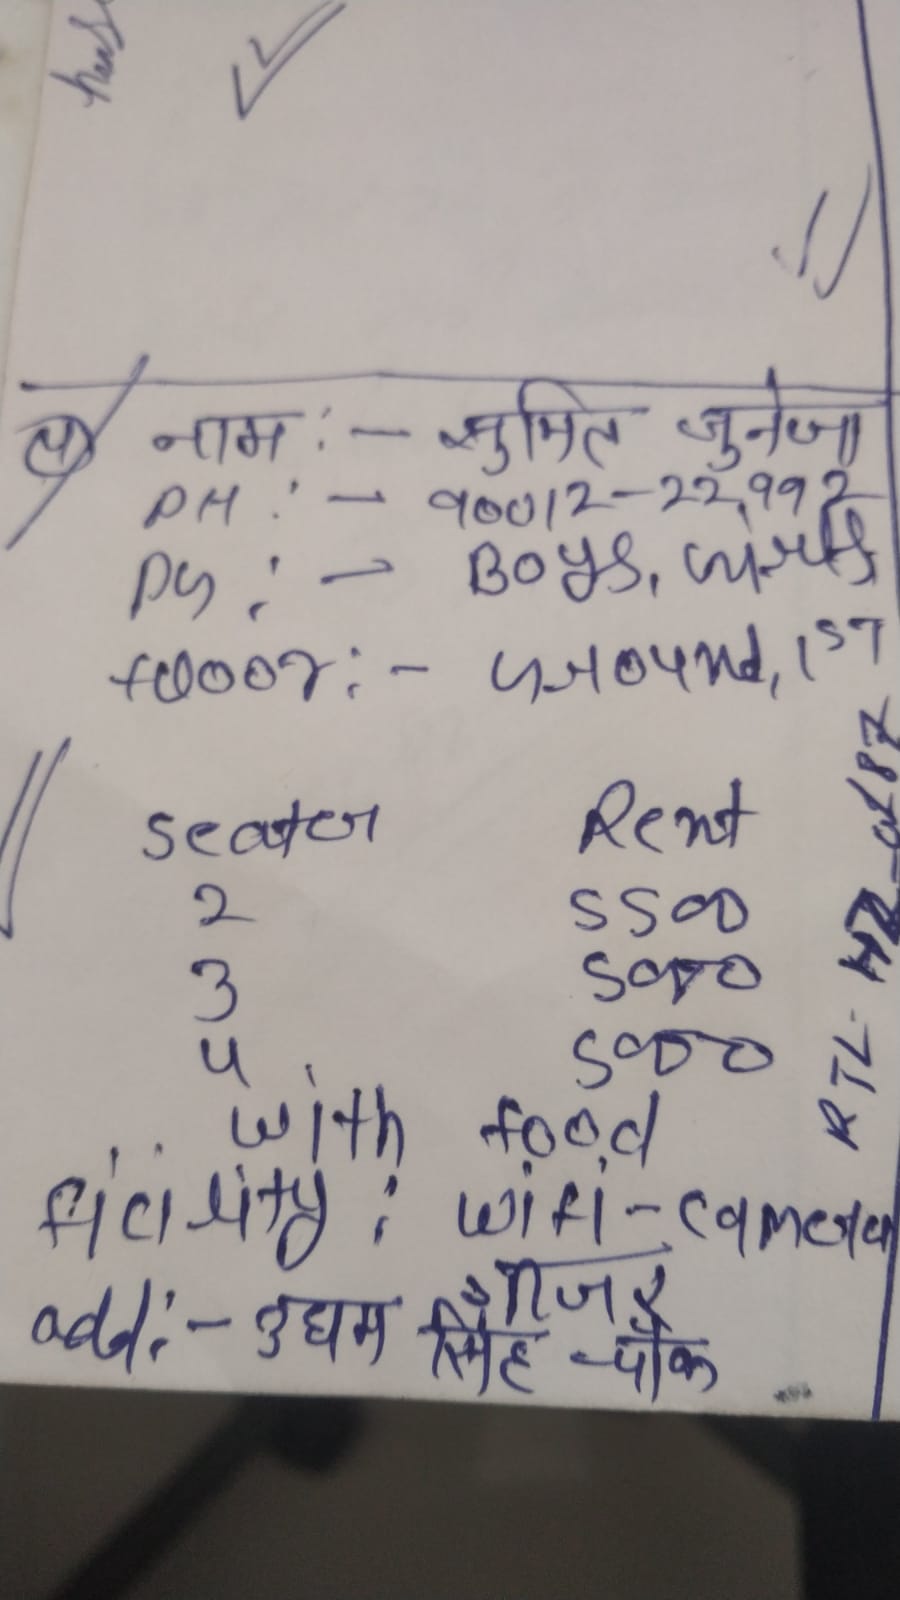 नाम :- सुमित जुनेजा
PH :- 90012-22,992
PG :- Boys, Girls
floor :- Ground, 1ST
Seater Rent
2 5500
3 5000
4 5000
with food
ficility : wifi - camera
गीजर
add :- उधम सिंह चौक